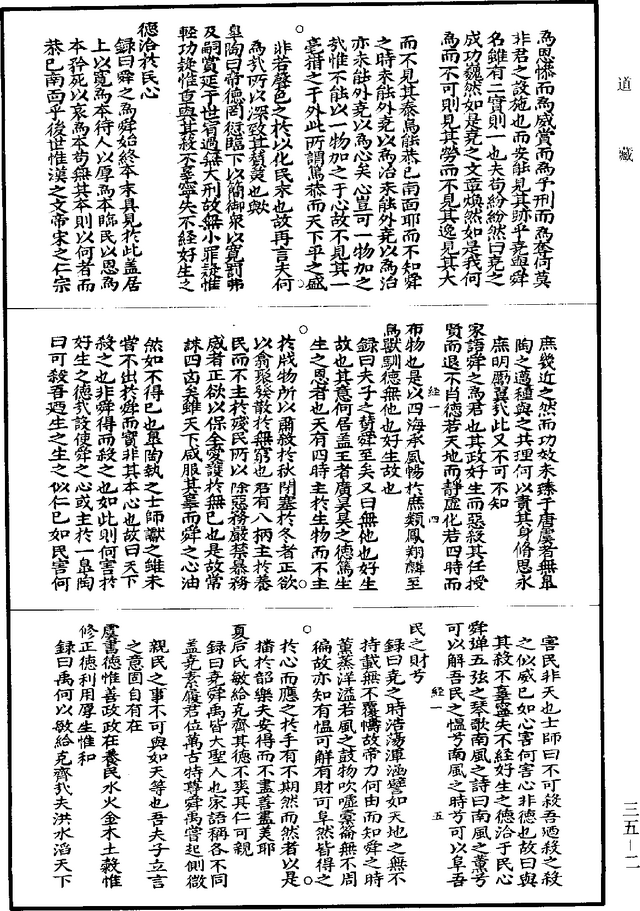 道藏
為恩慘而為威賞而為予刑而為奪何莫
非君之設施也而安能見其跡乎堯與舜
名雖有二實則一也夫苟紛紛然曰堯之
成功巍然如是堯之文章煥然如是我何
為而不可則見其勞而不見其逸見其大
而不見其泰烏能恭己南面耶而不知舜
之時未能外堯以為治未能外堯以為治
亦未能外堯以為心矣心豈可一物加之
哉惟不能以一物加之于心故不見其一
毫措之于外此所謂篤恭而天下平之盛
非若聲色之於以化民末也故再言夫何
為哉所以深致其贊美也歟
皐陶曰帝德罔愆臨下以簡御衆以寬罰弗
及嗣賞延于世宥過無大刑故無小罪疑惟
輕功疑惟重與其殺不辜寧失不經好生之
德洽於民心
錄曰舜之為舜始終本末具見於此盖居
上以寬為本待人以厚為本臨民以恩為
本矜死以哀為本苟無其本則以何者而
恭己南面乎後世惟漢之文帝宋之仁宗
庶幾近之然而功效未臻于唐虞者無皐
陶之邁種與之共理何以責其身脩思永
庶明勵翼哉此又不可不知
家語舜之為君也其政好生而惡殺其任授
賢而退不肖德若天地而靜虛化若四時而
布物也是以四海承風暢於庶類鳳翔麟至
經一
四
鳥獸馴德無他也好生故也
錄曰夫子之贊舜至矣又曰無他也好生
故也其意何居盖王者廣昊昊之德篤生
生之恩者也天有四時主於生物而不主
於戕物所以肅殺於秋閉塞於冬者正欲
以翕聚發散於無窮也君有八柄主於養
民而不主於殘民所以除惡務嚴禁暴務
威者正欲以保全愛護於無已也是故常
誅四凶矣雖天下咸服其辜而舜之心油
然如不得已也皐陶執之士師讞之雖未
嘗不出於舜而實非其本心也故曰天下
殺之也非舜得而殺之也如此則何害於
好生之德哉設使舜之心或主於一皐陶
曰可殺吾廼生之生之似仁已如民害何
害民非天也士師曰不可殺吾廼殺之殺
之似威已如心害何害心非德也故曰與
其殺不辜寧失不經好生之德洽于民心
舜彈五弦之琴歌南風之詩曰南風之薰兮
可以解吾民之慍兮南風之時兮可以阜吾
經一
五
民之財兮
錄曰堯之時浩蕩渾涵譬如天地之無不
持載無不覆幬故帝力何由而知舜之時
薰蒸洋溢若風之鼓物吹噓橐籥無不周
徧故亦知有慍可解有財可阜然皆得之
於心而應之於手有不期然而然者以是
播於韶樂夫安得而不盡善盡美耶
夏后氏敏給克齊其德不爽其仁可親
錄曰堯舜禹皆大聖人也家語稱各不同
盖堯素履君位萬古特尊舜禹嘗起側微
親民之事不可與如天等也吾夫子立言
之意固自有在
虞書德惟善政政在養民水火金木土穀惟
修正德利用厚生惟和
錄曰禹何以敏給克齊哉夫洪水滔天下
三五－二